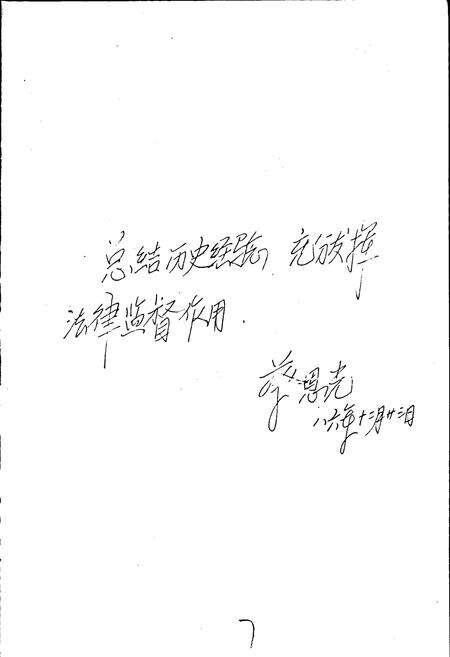 总结历史经验，充分发挥
法律监督作用.
蔡恩光
八六年十二月廿三日
7